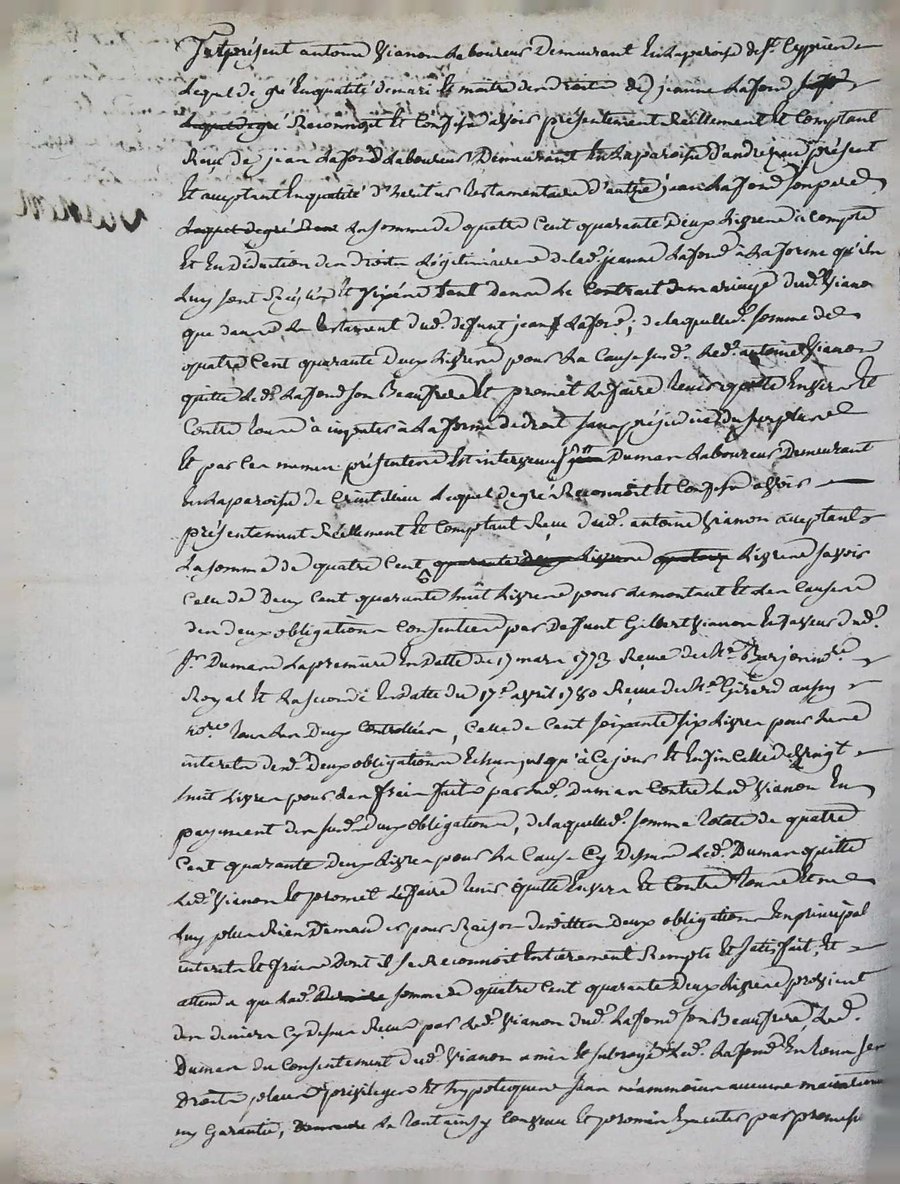 fut présent antoine Vianon Laboureur Demeurant En La paroisse de St. Cyprien
Lequel de gré En qualité de mari Et maitre des droits de jeanne Lafond
Lequel de gré Reconnoit Et Confesse avoir présentement Réellement Et Comptant
Reçu de jean Lafond Laboureur Demeurant En La paroisse d'andrezieu présent
Et acceptant En qualité d'heritier testamentaire d'autre jean Lafond son pere
Lequel de gré La somme de quatre Cent quarante Deux Livres à compte
Et En Déduction des droits Légitimaires de lad. jeanne Lafond a La forme qu'ils
Luy sont Réglés Et fixés tant dans Le Contrat de mariage dud. Vianon
que dans Le testament dud. defunt jean Lafond, de laquelle d. somme de
quatre Cent quarante Deux Livres pour La Cause susd. Led. antoine Vianon
quitte Led. Lafond son Beaufrere Et promet Le faire tenir quitte Envers Et
Contre tous à imputer à La forme de droit sans préjudice du surplus
Et par Ces memes présentes Est intervenu Duman Laboureur Demeurant
En La paroisse de Craintilieu Lequel de gré Reconnoit Et Confesse avoir
présentement Réellement Et Comptant Reçu dud. antoine Vianon acceptant
La somme de quatre Cent quarante Deux Livres Livres savoir
Celle de Deux Cent quarante huit Livres pour Le montant Et Les Causes
des deux obligations Consenties par Deffunt Gilbert Vianon En faveur dud.
Duman La premiere En Datte du 17 mars 1773 Reçue de Me. Barjon nore.
Royal Et La seconde En datte du 17e. avril 1780 Reçue de Me. Girard aussy
nore. toutes Les Deux Controllées, Celle de Cent soixante six Livres pour Les
interets desd. Deux obligations Echus jusqu'à Ce jour Et Enfin Celle de Vingt
huit Livres pour Les frais faits par led. Duman Contre Led. Vianon En
payement des susd. Deux obligations, de laquelle d. somme totale de quatre
Cent quarante Deux Livres pour La Cause Cy Dessus Led. Duman quitte
Led. Vianon Et promet Le faire tenir quitte Envers Et Contre tous Et ne
Luy plus Rien Demander pour Raison desdittes Deux obligations En principal
interets Et frais Dont il se Reconnoit Entierement Rempli Et satisfait, Et
attendu que Lad. somme de quatre Cent quarante Deux Livres provient
des deniers Cy dessus Reçus par Led. Vianon dud. Lafond son Beaufrere, Led.
Duman du Consentement dud. Vianon a mis Et subrogé Led. Lafond En tous ses
Droits places privileges Et hypotheques sans néammoins aucune maintenue
ny Garantie, Le tout ainsy Convenu Et promis Executer par promesse